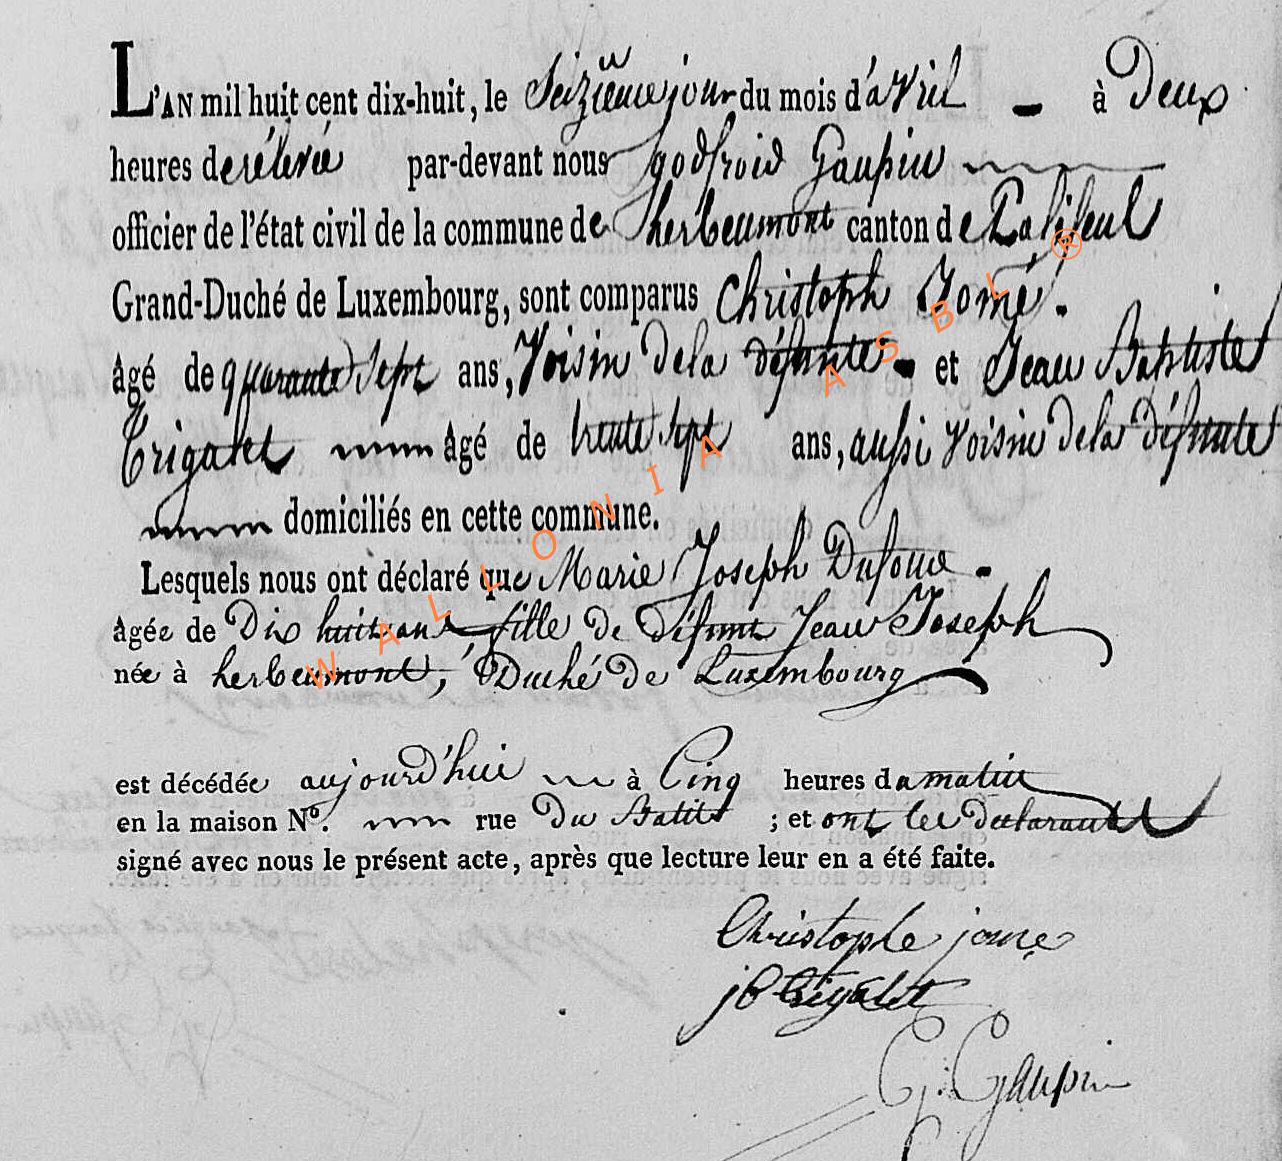 L'AN mil huit cent dix-huit, le Seizième jour du mois d'avril à Deux
heures de rélevée par-devant nous godfroid Gaupin
officier de l'état civil de la commune de herbeumont canton de Paliseul
Grand-Duché de Luxembourg, sont comparus Christoph Jomé.
âgé de quarante Sept ans, Voisin de la défunte et Jean Baptiste
Trigalet âgé de trente Sept ans, aussi Voisin de la défunte
domiciliés en cette commune.
Lesquels nous ont déclaré que Marie Joseph
âgée de Dix huit ans fille de défunt Jean Joseph
née à herbeumont, Duché de Luxembourg
est décédée aujourd'hui à Cinq heures da matin
en la maison N°. rue Du ; et ont les declarants
signé avec nous le présent acte, après que lecture leur en a été faite.
Christophe jome
jB trigalet
G: Gaupin
WALLONIA ASBL ®